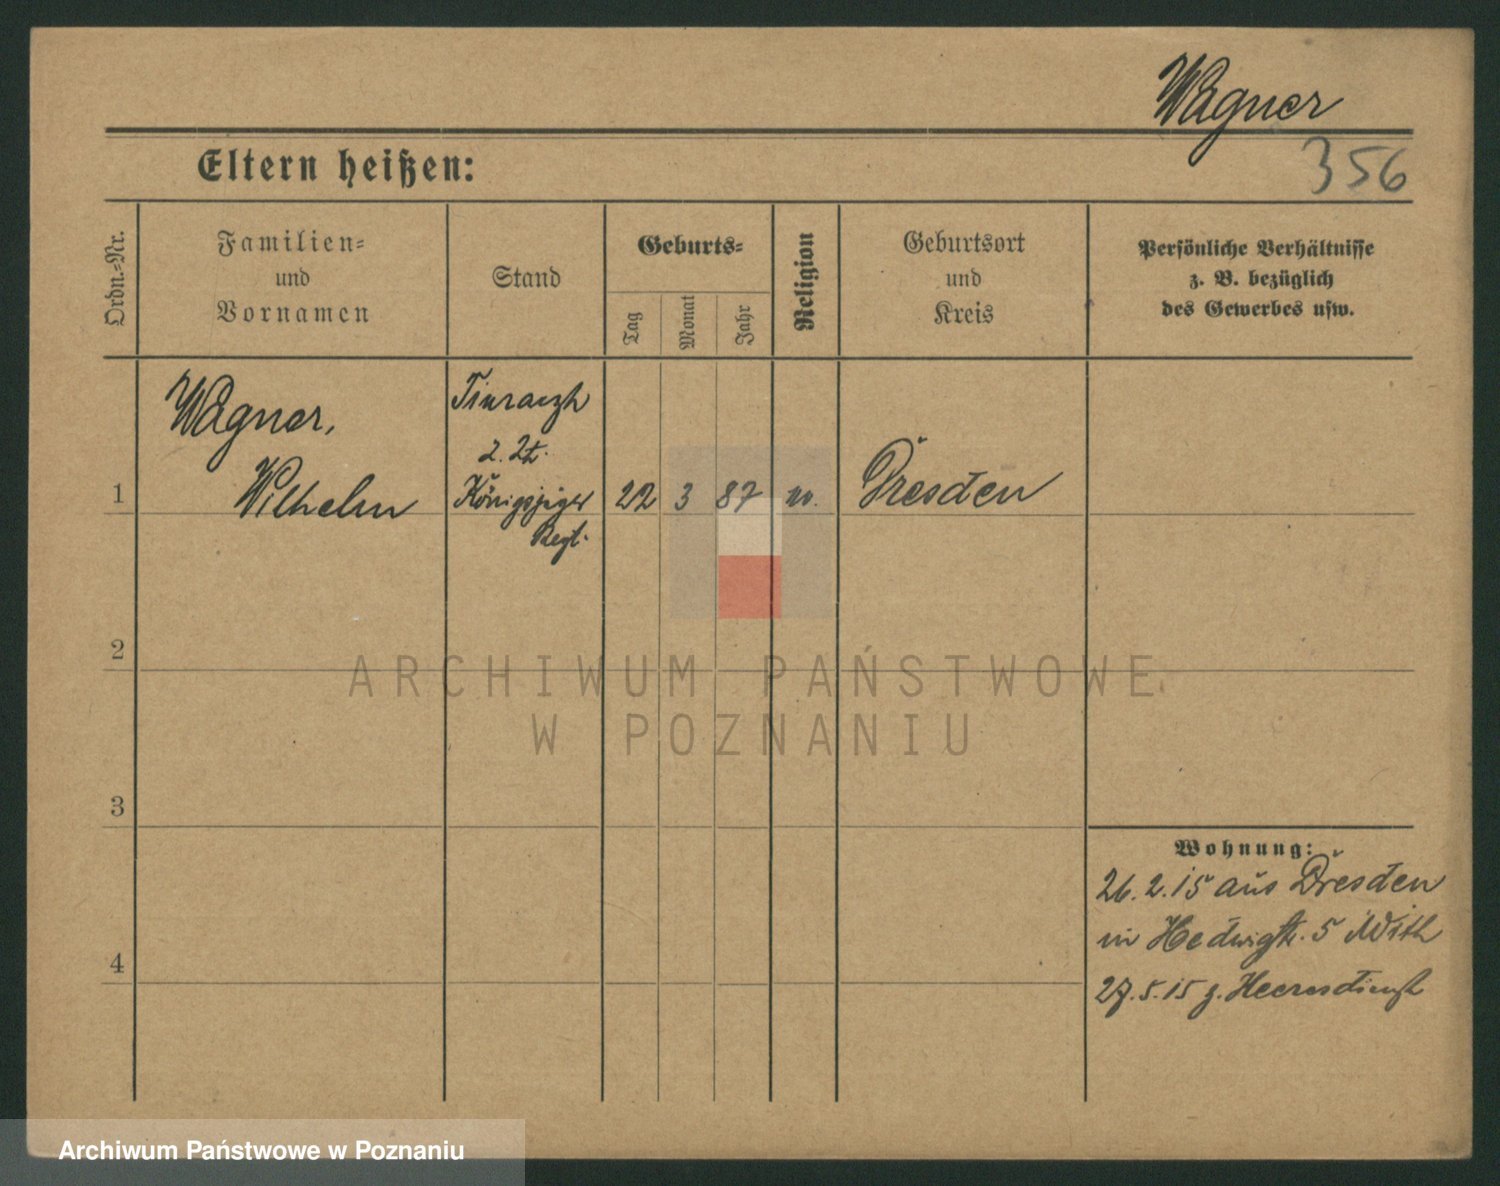 Wagner
356
Eltern heißen:
Ordn.-Nr.
Familien-
und
Vornamen
Stand
Geburts-
Tag
Monat
Jahr
Religion
Geburtsort
und
Kreis
Persönliche Verhältnisse
z. B. bezüglich
des Gewerbes usw.
1
Wagner,
Wilhelm
Tierarzt
z. Zt.
Königsjäger
Regt.
22
3
87
Dresden
2
3
4
Wohnung:
26.2.15 aus Dresden
in Hedwigstr. 5
27.5.15 z. Heeresdienst
ARCHIWUM PAŃSTWOWE
W POZNANIU
Archiwum Państwowe w Poznaniu